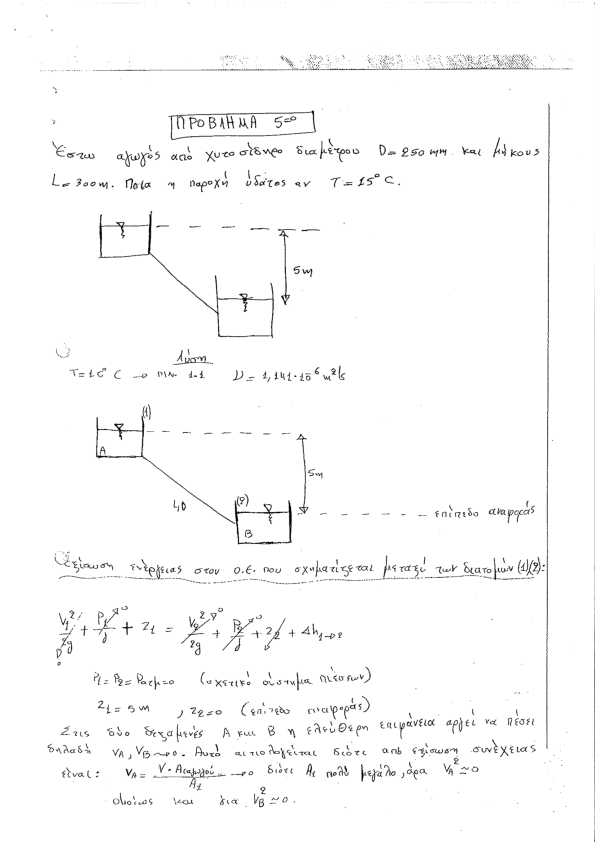 ΠΡΟΒΛΗΜΑ 5ο
Έστω αγωγός από χυτοσίδηρο διαμέτρου D=250mm και μήκους
L=300m. Ποια η παροχή ύδατος αν T=15°C.
5m
Λύση
T=15°C → ΠΙΝ. 1-1 ν = 1,141·10⁻⁶ m²/s
(1)
A
5m
L,D
(2)
B
επίπεδο αναφοράς
Εξίσωση ενέργειας στον ο.ε. που σχηματίζεται μεταξύ των διατομών (1)(2):
V₁²/2g + P₁/γ + Z₁ = V₂²/2g + P₂/γ + Z₂ + Δh₁→₂
P₁=P₂=Pατμ=0 (σχετικό σύστημα πιέσεων)
Z₁=5m , Z₂=0 (επίπεδο αναφοράς)
Στις δύο δεξαμενές A και B η ελεύθερη επιφάνεια αργεί να πέσει
δηλαδή VA, VB→0. Αυτό αιτιολογείται διότι από εξίσωση συνέχειας
είναι: VA = V·Aαγωγού/A₁ →0 διότι A₁ πολύ μεγάλο, άρα VA²≃0
ομοίως και για VB²≃0.